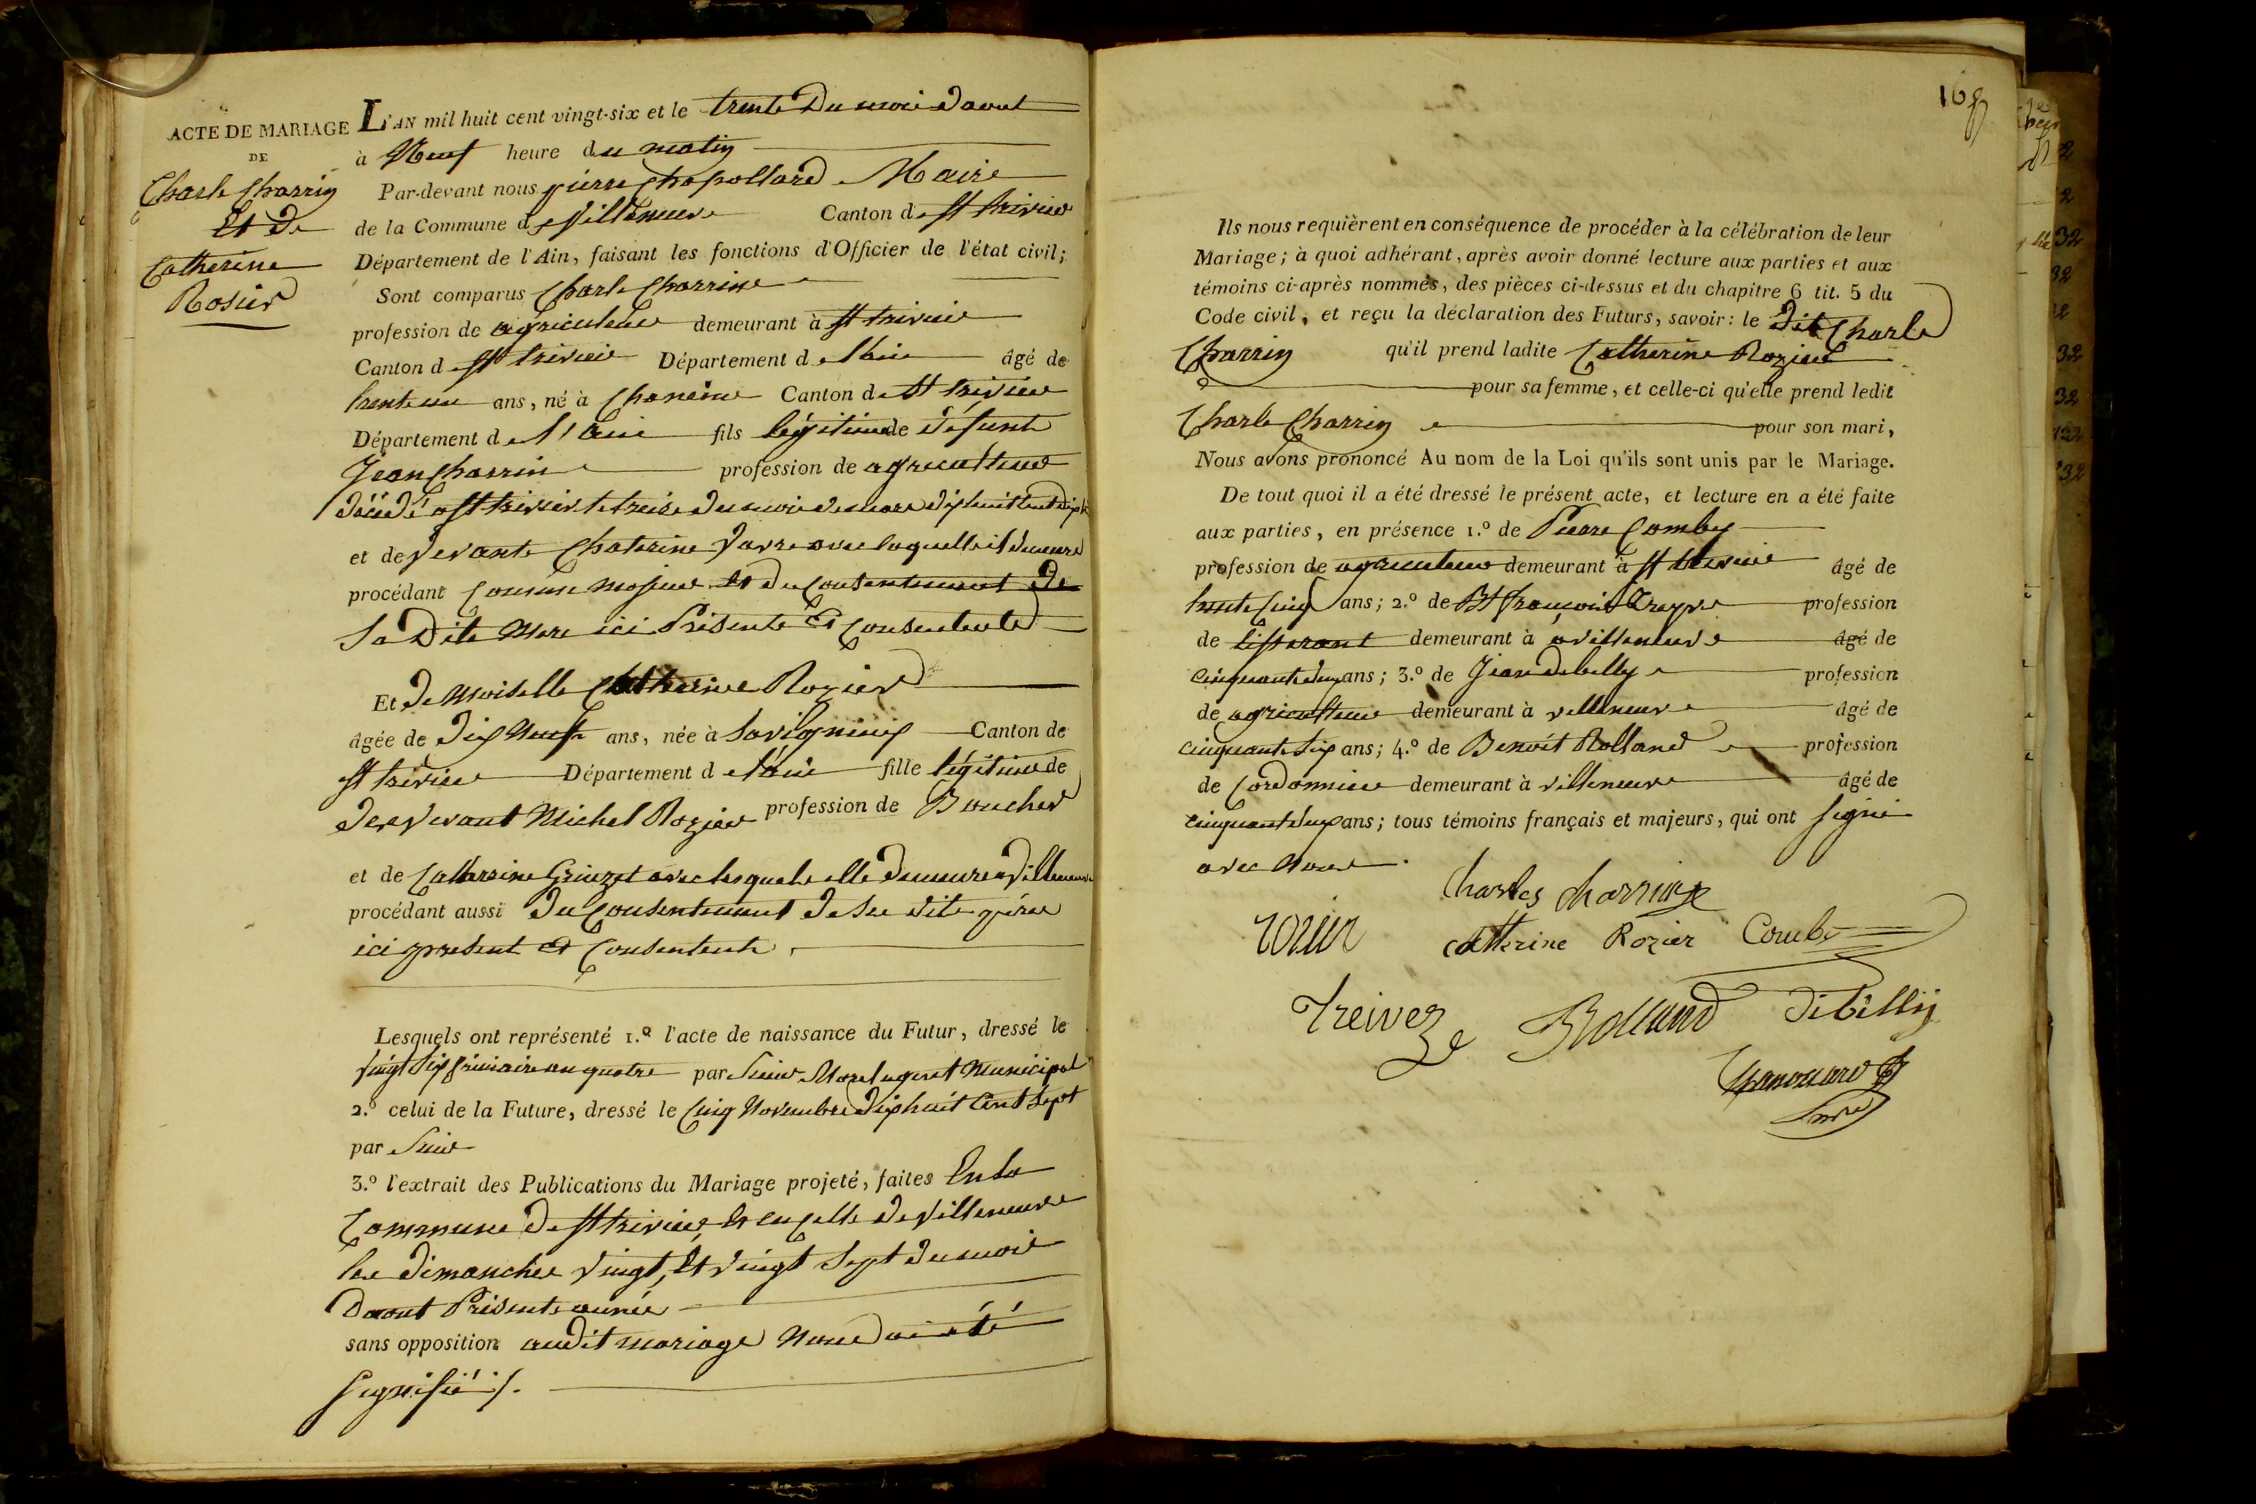 ACTE DE MARIAGE
DE
Charle Charrin
Et De
Catherine
Rosier
L'AN mil huit cent vingt-six et le trente Du moi Daout
à Neuf heure du matin
Par-devant nous pierre Chapollard Maire
de la Commune de Villeneuve Canton de St trivier
Département de l'Ain, faisant les fonctions d'Officier de l'état civil;
Sont comparus Charle Charrin
profession de agriculteur demeurant à St trivier
Canton de St trivier Département de l'Ain âgé de
trente un ans, né à Chaneins Canton de St trivier
Département de l'Ain fils légitime de défunt
Jean Charrin profession de agriculteur
décédé a St trivier le treize du moi de mars dix huit cent dix
et de vivante Chaterine avec laquelle il demeure
procédant comme majeur Et du consentement De
Sa Dite Mere ici Présente Et Consentente
Et De Moiselle Catherine Rozier
âgée de Dix Neuf ans, née à Savigneux Canton de
St trivier Département de l'ain fille légitime de
vivant Michel Rozier profession de Boucher
et de Catherine avec lesquels elle Demeure a Villeneuve
procédant aussi Du Consentement De Se dite père
ici present Et Consentente
Lesquels ont représenté 1.º l'acte de naissance du Futur, dressé le
vingt Six frimaire an quatre par Sieur Morel agent Municipal
2.º celui de la Future, dressé le Cinq Novembre Dix huit Cent Sept
par Sieur
3.º l'extrait des Publications du Mariage projeté, faites En la
Commune De St trivier, Et en Celle De Villeneuve
les Dimanches vingt, Et vingt Sept du moi
Daout Présente année
sans opposition audit mariage Nous ai été
Signifié
168
Ils nous requièrent en conséquence de procéder à la célébration de leur
Mariage; à quoi adhérant, après avoir donné lecture aux parties et aux
témoins ci-après nommés, des pièces ci-dessus et du chapitre 6 tit. 5 du
Code civil, et reçu la déclaration des Futurs, savoir: le Dit Charle
Charrin qu'il prend ladite Catherine Rozier
pour sa femme, et celle-ci qu'elle prend ledit
Charle Charrin pour son mari,
Nous avons prononcé Au nom de la Loi qu'ils sont unis par le Mariage.
De tout quoi il a été dressé le présent acte, et lecture en a été faite
aux parties, en présence 1.º de Pierre Comby
profession de agriculteur demeurant à St trivier âgé de
trente Cinq ans; 2.º de Bt françois Treyve profession
de tisserant demeurant à a villeneuve âgé de
cinquante deux ans; 3.º de Jean debilly profession
de agriculteur demeurant à villeneuve âgé de
cinquante Six ans; 4.º de Benoit Rolland profession
de Cordonnier demeurant à villeneuve âgé de
cinquante ans; tous témoins français et majeurs, qui ont Signé
avec Nous.
Charles Charrin
rozier catherine Rozier Combe
Treivez Rolland Debilly